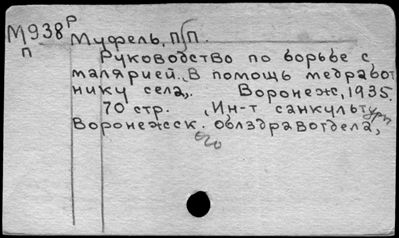 М938 Р
п
Муфель, П.П.
Руководство по борьбе с
малярией. (В помощь медработ
нику села). Воронеж, 1935.
70 стр. (Ин-т санкультуры
Воронежск. облздравотдела,